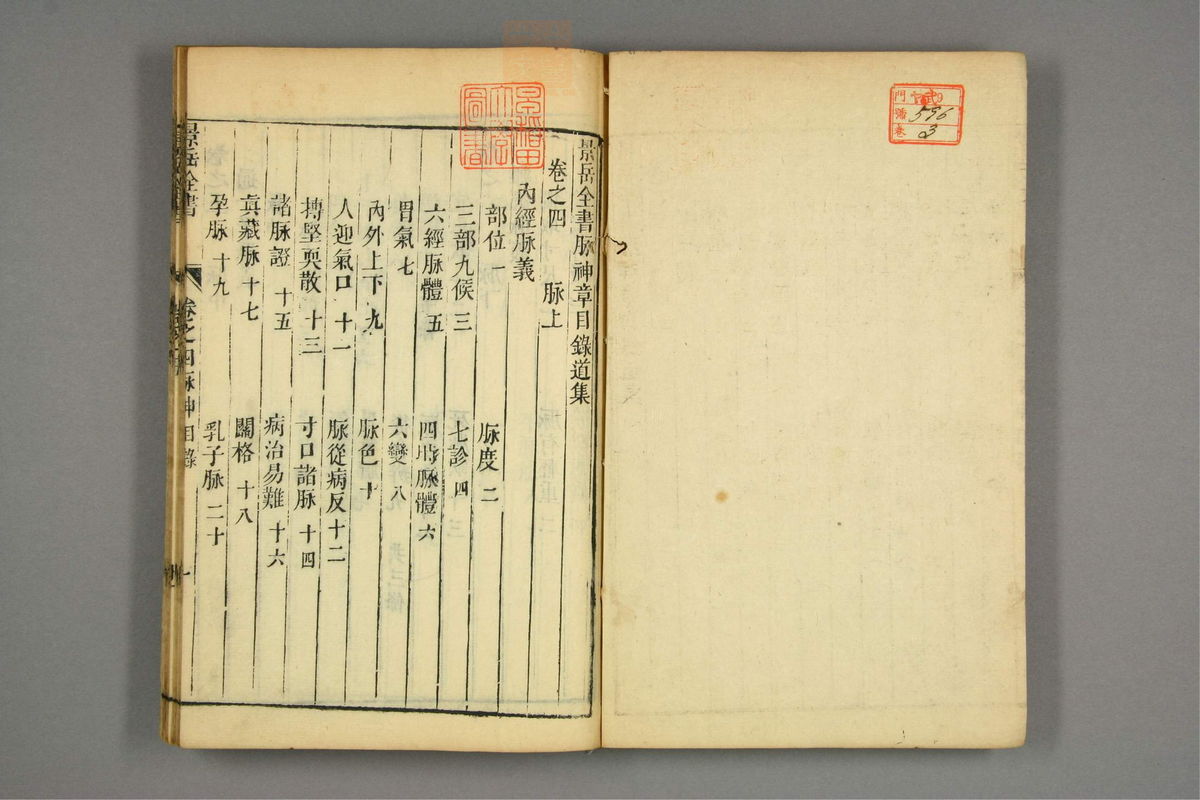 景岳全書脉神章目錄道集
卷之四　脉上
內經脉義
部位一　脉度二
三部九候三　七診四
六經脉體五　四時脉體六
胃氣七　六變八
內外上下九　脉色十
人迎氣口十一　脉從病反十二
搏堅耎散十三　寸口諸脉十四
諸脉證十五　病治易難十六
眞藏脉十七　關格十八
孕脉十九　乳子脉二十
景岳全書　卷之四脉神目錄　一
門
號 596
卷 3